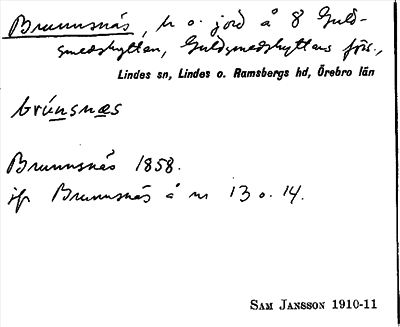 Brunnsnäs, h o. jord å 8 Guld-
smedshyttan, Guldsmedshyttans förs.,
Lindes sn, Lindes o. Ramsbergs hd, Örebro län
brúnsnæs
Brunnsnäs 1858.
jfr Brunnsnäs å nr 13 o. 14.
SAM JANSSON 1910-11